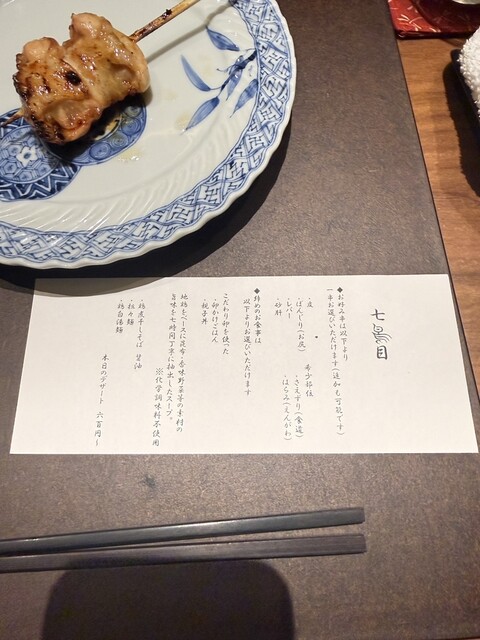 七鳥目
◆お好み串は以下より
一串お選びいただけます(追加も可能です)
・皮
・ぼんじり(お尻)
・レバー
・砂肝
希少部位
・さえずり(食道)
・はらみ(えんがわ)
◆締めのお食事は
以下よりお選びいただけます
こだわり卵を使った
・卵かけごはん
・親子丼
地鶏をベースに昆布・香味野菜等の素材の
旨味を七時間丁寧に抽出したスープ。
※化学調味料不使用
・鶏煮干しそば 醤油
・担々麺
・鶏白湯麺
本日のデザート 六百円〜